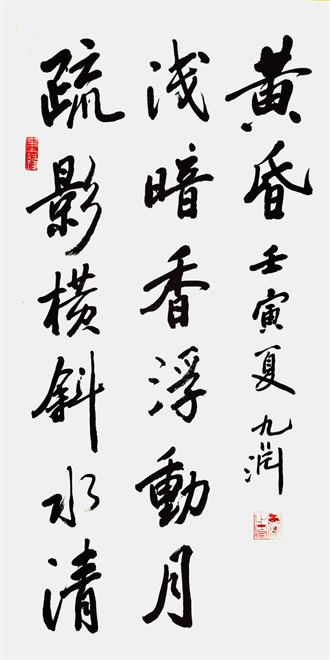 疏影横斜水清
浅暗香浮動月
黄昏 壬寅夏 九